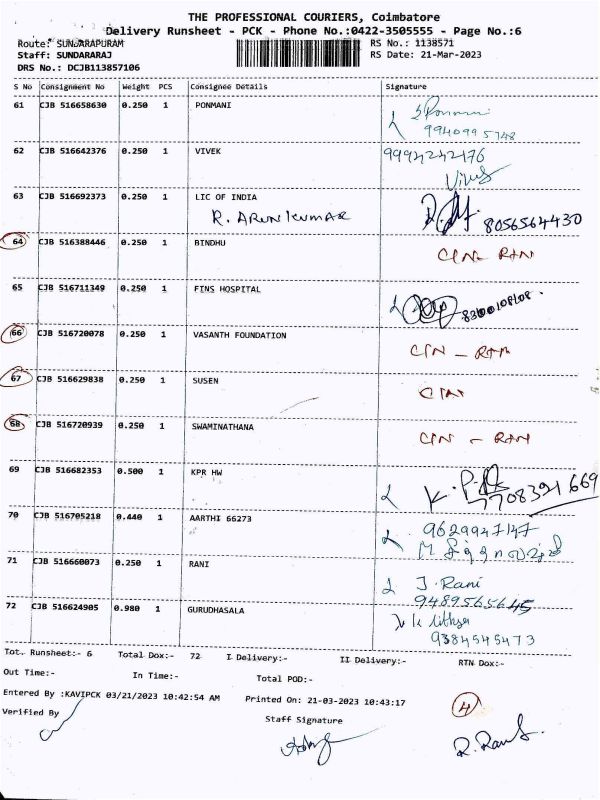 THE PROFESSIONAL COURIERS, Coimbatore
Delivery Runsheet - PCK - Phone No.:0422-3505555 - Page No.:6
Route: SUNDARAPURAM RS No.: 1138571
Staff: SUNDARARAJ RS Date: 21-Mar-2023
DRS No.: DCJB113857106
S No Consignment No Weight PCS Consignee Details Signature
61 CJB 516658630 0.250 1 PONMANI
9940995748
62 CJB 516642376 0.250 1 VIVEK 9994242176
63 CJB 516692373 0.250 1 LIC OF INDIA
R. ARUNKUMAR 8056564430
64 CJB 516388446 0.250 1 BINDHU CIN - RTN
65 CJB 516711349 0.250 1 FINS HOSPITAL 8300108108
66 CJB 516720078 0.250 1 VASANTH FOUNDATION CIN - RTN
67 CJB 516629838 0.250 1 SUSEN CIN
68 CJB 516720939 0.250 1 SWAMINATHANA CIN - RTN
69 CJB 516682353 0.500 1 KPR HW
7708391669
70 CJB 516705218 0.440 1 AARTHI 66273 9629947147
71 CJB 516660073 0.250 1 RANI J. Rani
9489565645
72 CJB 516624905 0.980 1 GURUDHASALA
9384545473
Tot. Runsheet:- 6 Total Dox:- 72 I Delivery:- II Delivery:- RTN Dox:-
Out Time:- In Time:- Total POD:-
Entered By :KAVIPCK 03/21/2023 10:42:54 AM Printed On: 21-03-2023 10:43:17 4
Verified By Staff Signature